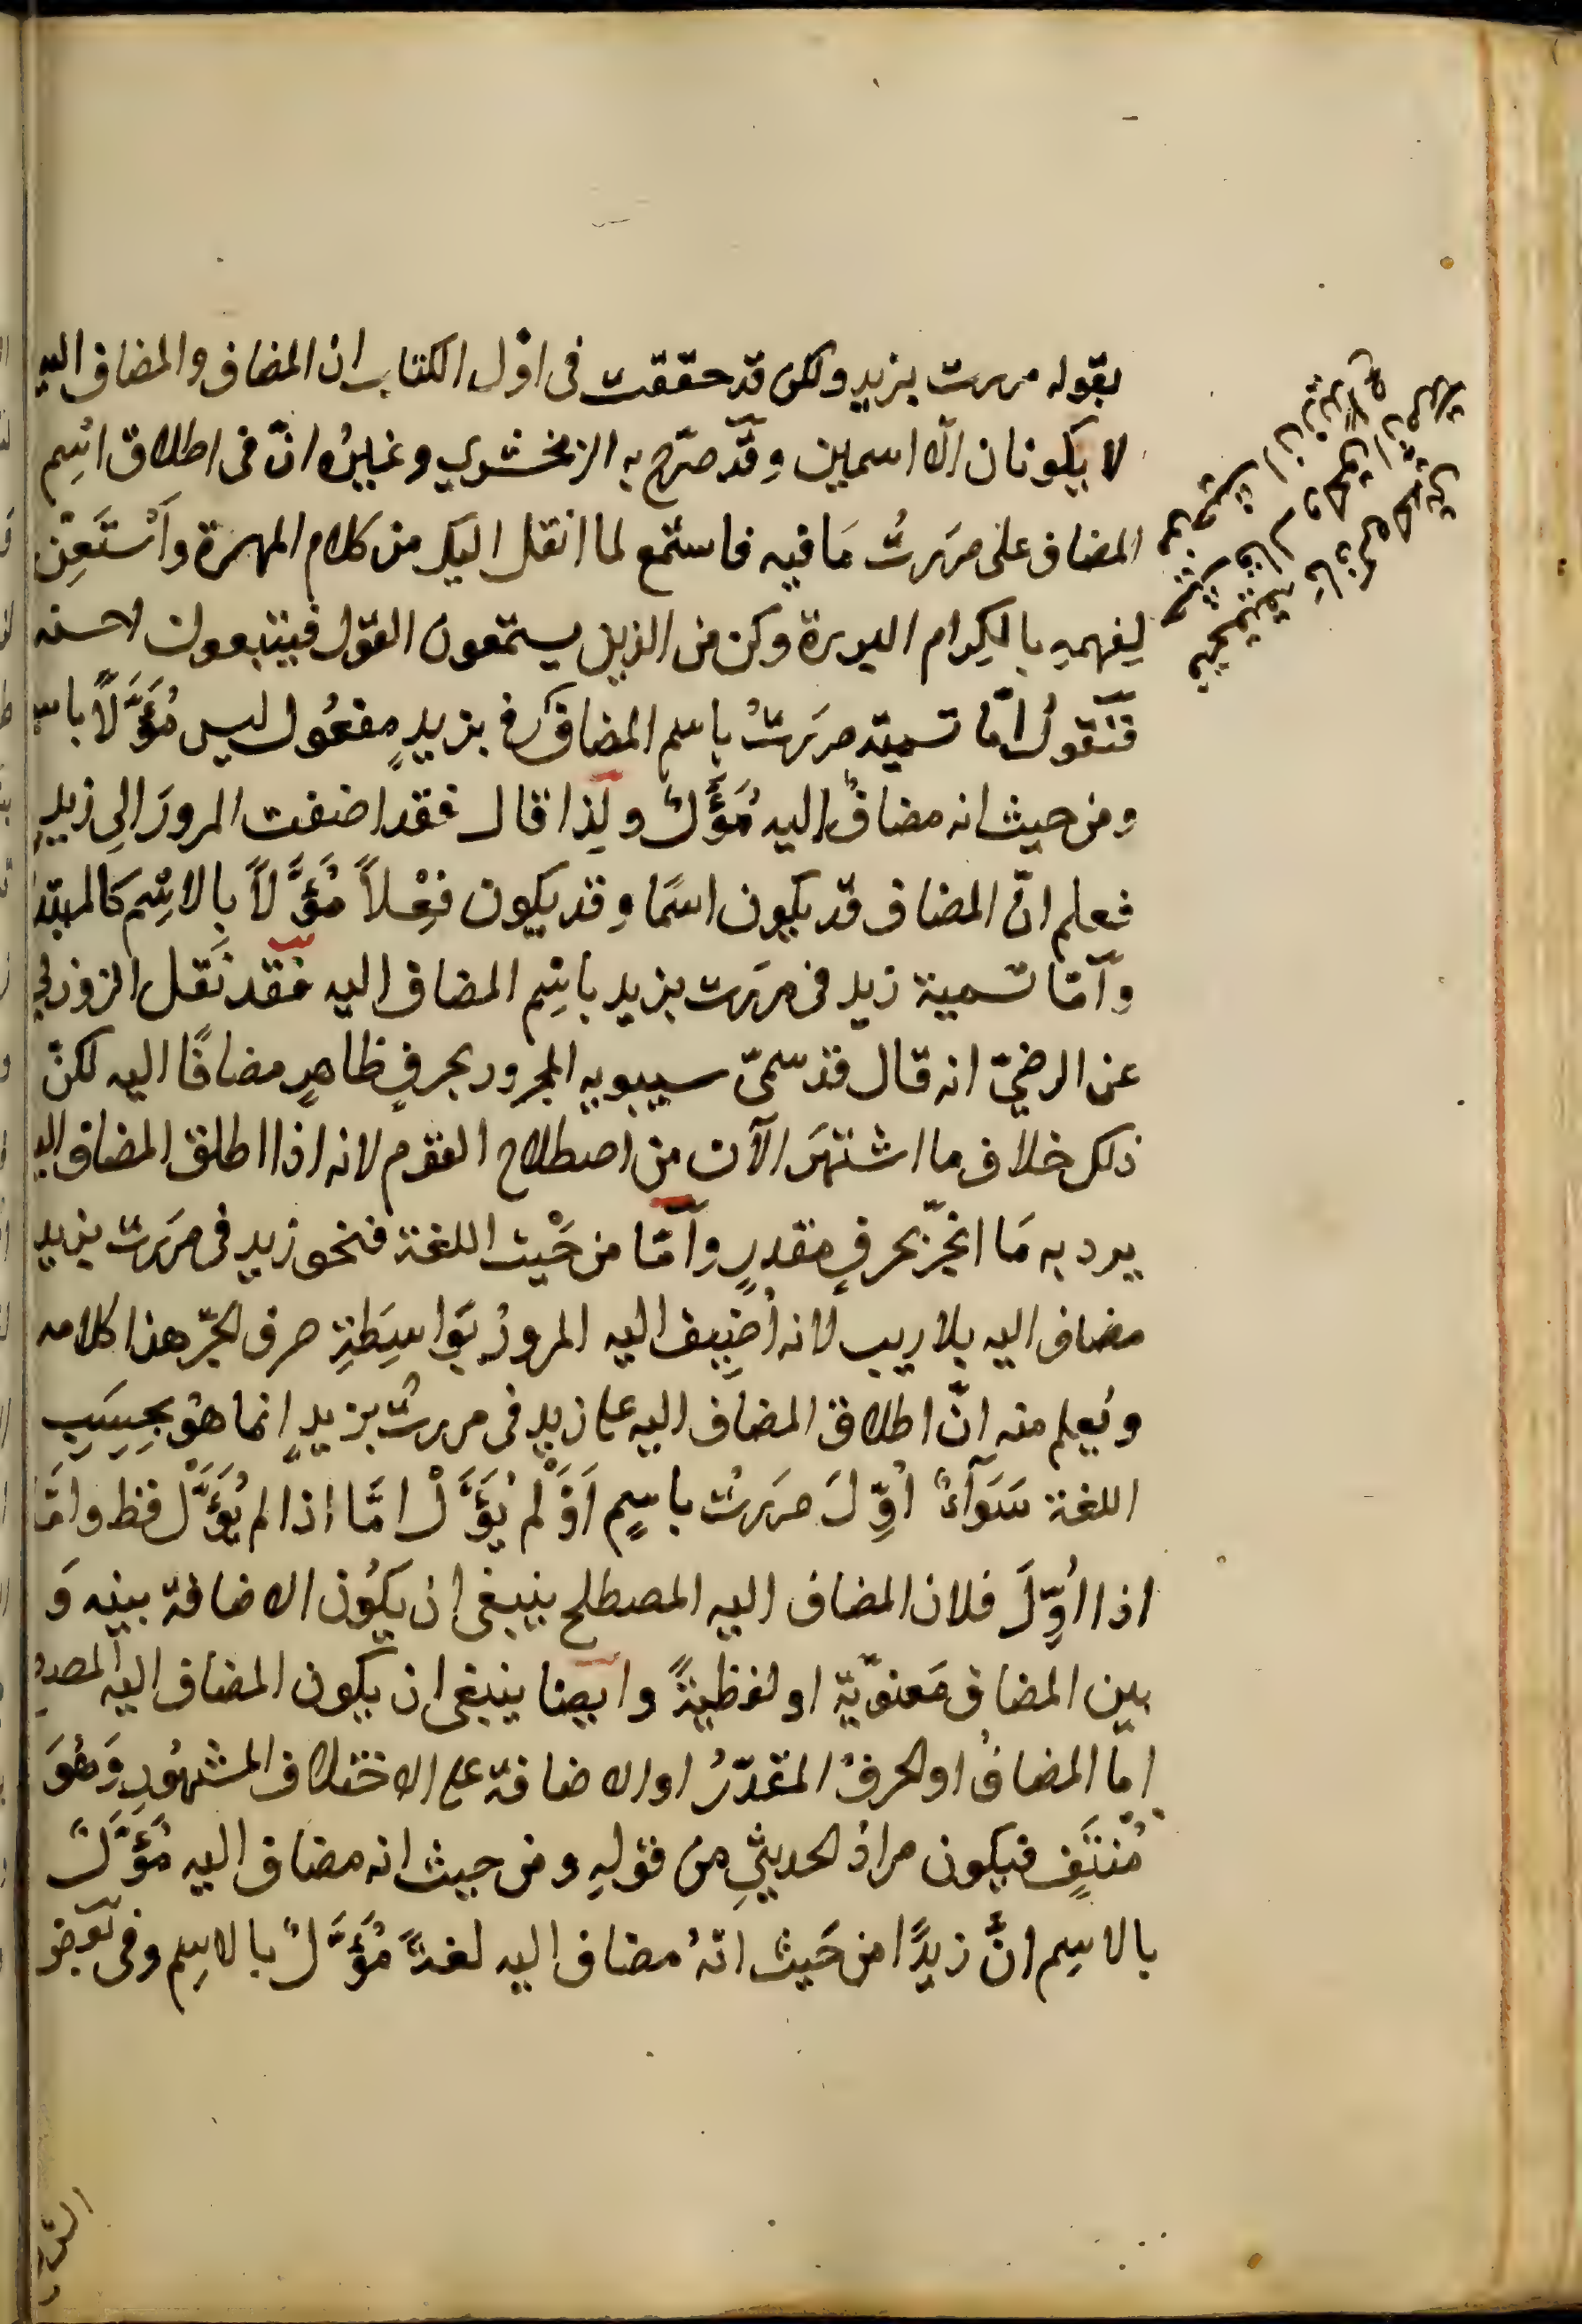 بقوله مررت بزيد ولكن قد حققت فى اوّل الكتاب ان المضاف والمضاف اليه
لا يكونان الّا اسمين وقد صرّح به الزمخشري وغيرُه انّ فى اطلاق اسْمِ
المضاف على مرَرتُ مَا فيه فاستمع لما انقل اليك من كلام المهرة وَاسْتَعِنْ
لِفهمهِ بالكِرام البررة وكن من الذين يستمعون القول فيتبعون لاحسنه
فَنَقولُ امّا تسمية مرَرتُ باسم المضاف فى بزيدٍ مفعُول ليس مُؤَوَّلًا باسم
ومن حيث انه مضافٌ اليه مُؤَوَّلٌ ولِذا قال فقد اضفت المرورَ الِى زيدٍ
فعلم انّ المضاف قد يكون اسمًا وقد يكون فِعْلاً مُؤَوَّلاً بالاسْمِ كالمبتدا
وَامّا تسمية زيد فى مررت بزيد باسْمِ المضاف اليه فقد نَقل الزوزني
عن الرضيّ انه قال قد سمىّ سيبويه المجرور بحرفٍ ظاهرٍ مضافًا اليه لكنّ
ذلك خلاف ما اشتهَر الآن من اصطلاح القوم لانه اذا اطلق المضاف اليه
يرد به مَا انجرّ بحرفٍ مقدرٍ وَامّا من حَيْث اللغة فنحو زيد فى مرَرت بزيد
مضاف اليه بلا ريب لانه اُضِيف اليه المرورُ بِوَاسِطَةِ حرف الجرّ هذا كلامه
ويُعلم منه انّ اطلاق المضاف اليه على زيد فى مررتُ بزيدٍ انما هوُ بحسَبِ
اللغة سَوَآءٌ اُوِّلَ مرَرتُ باسمٍ اَوْ لَمْ يُؤَوَّلْ امَّا اذا لم يُؤَوَّل فظ وامّا
اذا اُوِّلَ فلان المضاف اليه المصطلح ينبغى ان يكُون الاضافة بينه وَ
بين المضاف مَعنويّة او لفظيةً وايضا ينبغى ان يكون المضاف اليه
امّا المضافُ او الحرفُ المقدّرُ او الاضافة على الاختلاف المشهُورِ وَهُوَ
مُنتَفٍ فيكون مرادُ الحديثيِّ من قولهِ ومن حيث انه مضاف اليه مُؤَوَّلٌ
بالاسِم انَّ زيدًا من حَيث انّهُ مضاف اليه لغةً مُؤَوَّلٌ بالاسِم وفى بعض